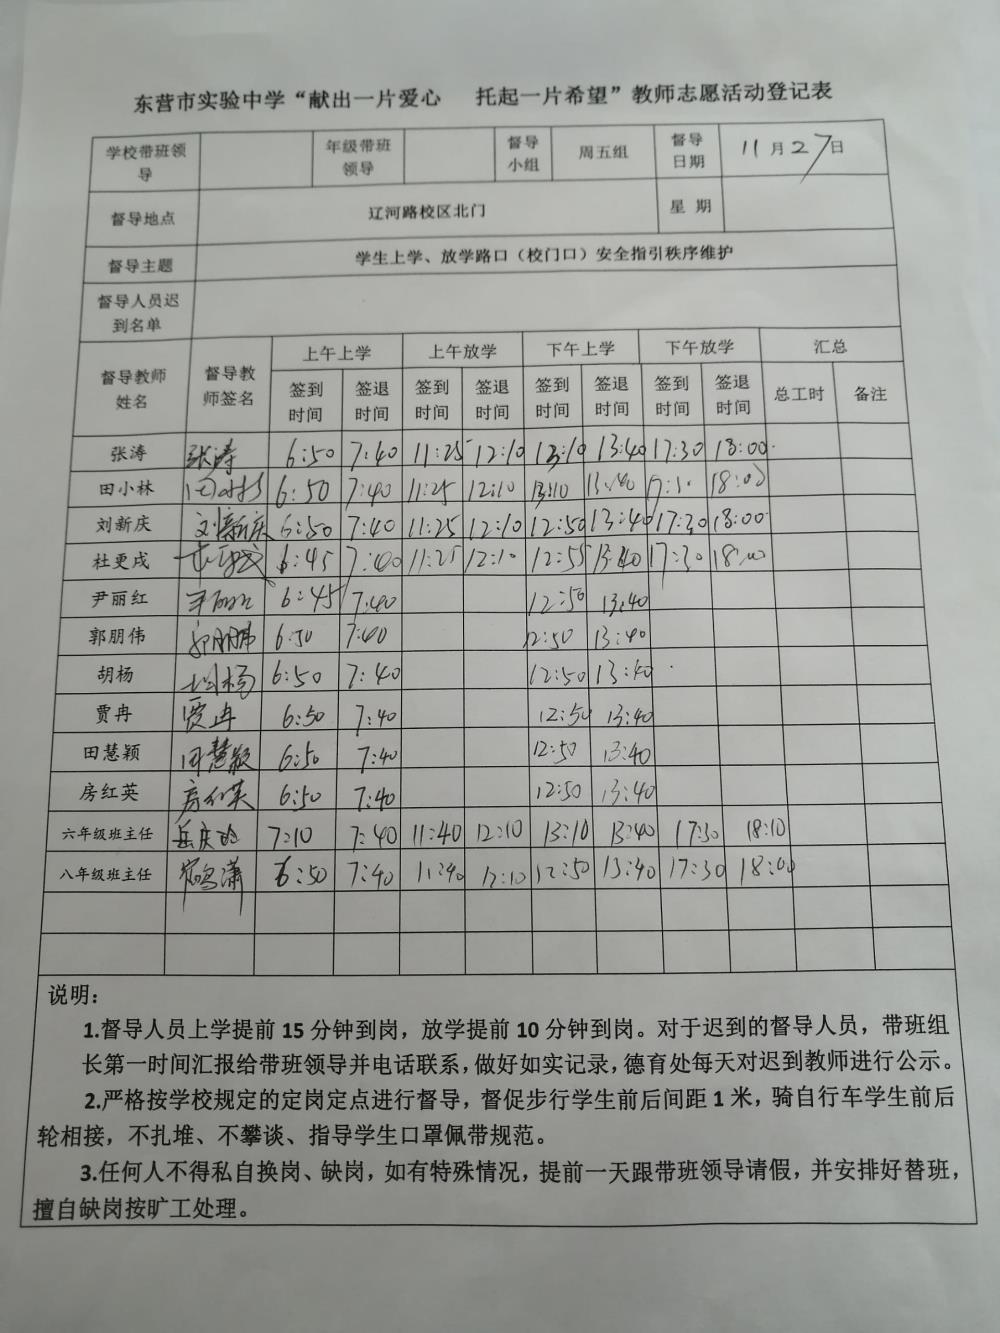 东营市实验中学“献出一片爱心 托起一片希望”教师志愿活动登记表
学校带班领导 年级带班领导 督导小组 周五组 督导日期 11月27日
督导地点 辽河路校区北门 星 期
督导主题 学生上学、放学路口（校门口）安全指引秩序维护
督导人员迟到名单
督导教师姓名 督导教师签名 上午上学 上午放学 下午上学 下午放学 汇总
签到时间 签退时间 签到时间 签退时间 签到时间 签退时间 签到时间 签退时间 总工时 备注
张涛 张涛 6:50 7:40 11:25 12:10 13:10 13:40 17:30 18:00
田小林 田小林 6:50 7:40 11:25 12:10 13:10 13:40 17:30 18:00
刘新庆 刘新庆 6:50 7:40 11:25 12:10 12:50 13:40 17:30 18:00
杜更戌 杜更戌 6:45 7:40 11:25 12:10 12:55 13:40 17:30 18:00
尹丽红 尹丽红 6:45 7:40 12:50 13:40
郭朋伟 郭朋伟 6:50 7:40 12:50 13:40
胡杨 胡杨 6:50 7:40 12:50 13:40
贾冉 贾冉 6:50 7:40 12:50 13:40
田慧颖 田慧颖 6:50 7:40 12:50 13:40
房红英 房红英 6:50 7:40 12:50 13:40
六年级班主任 7:10 7:40 11:40 12:10 13:10 13:40 17:30 18:10
八年级班主任 6:50 7:40 11:40 12:10 12:50 13:40 17:30 18:00
说明：
1.督导人员上学提前 15 分钟到岗，放学提前 10 分钟到岗。对于迟到的督导人员，带班组
长第一时间汇报给带班领导并电话联系，做好如实记录，德育处每天对迟到教师进行公示。
2.严格按学校规定的定岗定点进行督导，督促步行学生前后间距 1 米，骑自行车学生前后
轮相接，不扎堆、不攀谈、指导学生口罩佩带规范。
3.任何人不得私自换岗、缺岗，如有特殊情况，提前一天跟带班领导请假，并安排好替班，
擅自缺岗按旷工处理。